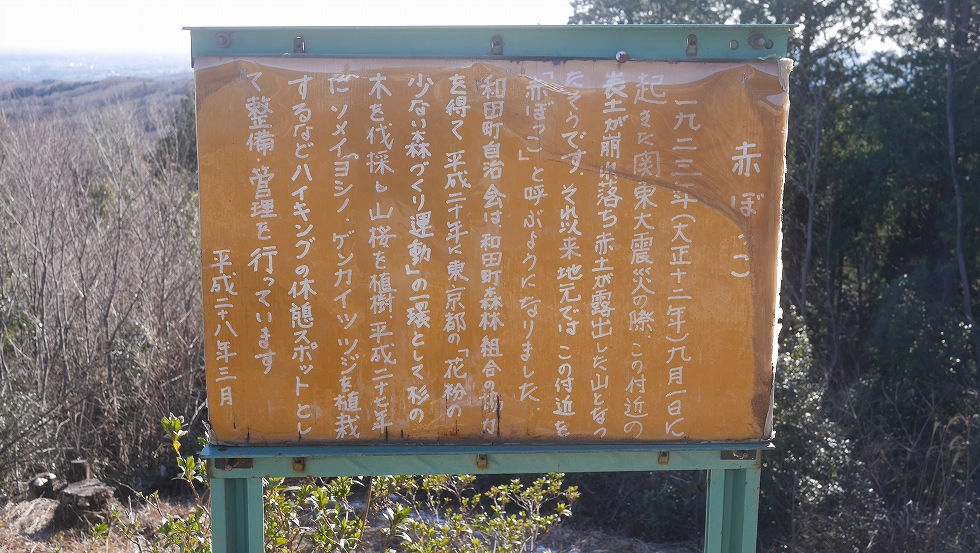 赤ぼっこ
一九二三年(大正十二年)九月一日に
起きた関東大震災の際、この付近の
表土が崩れ落ち赤土が露出した山となっ
たそうです。それ以来地元では この付近を
「赤ぼっこ」と呼ぶようになりました。
和田町自治会は 和田町森林組合の協力
を得て 平成二十年に東京都の「花粉の
少ない森づくり運動」の一環として杉の
木を伐採し 山桜を植樹 平成二十七年
にソメイヨシノ、ゲンカイツツジを植栽
するなどハイキングの休憩スポットとし
て整備・管理を行っています
平成二十八年三月